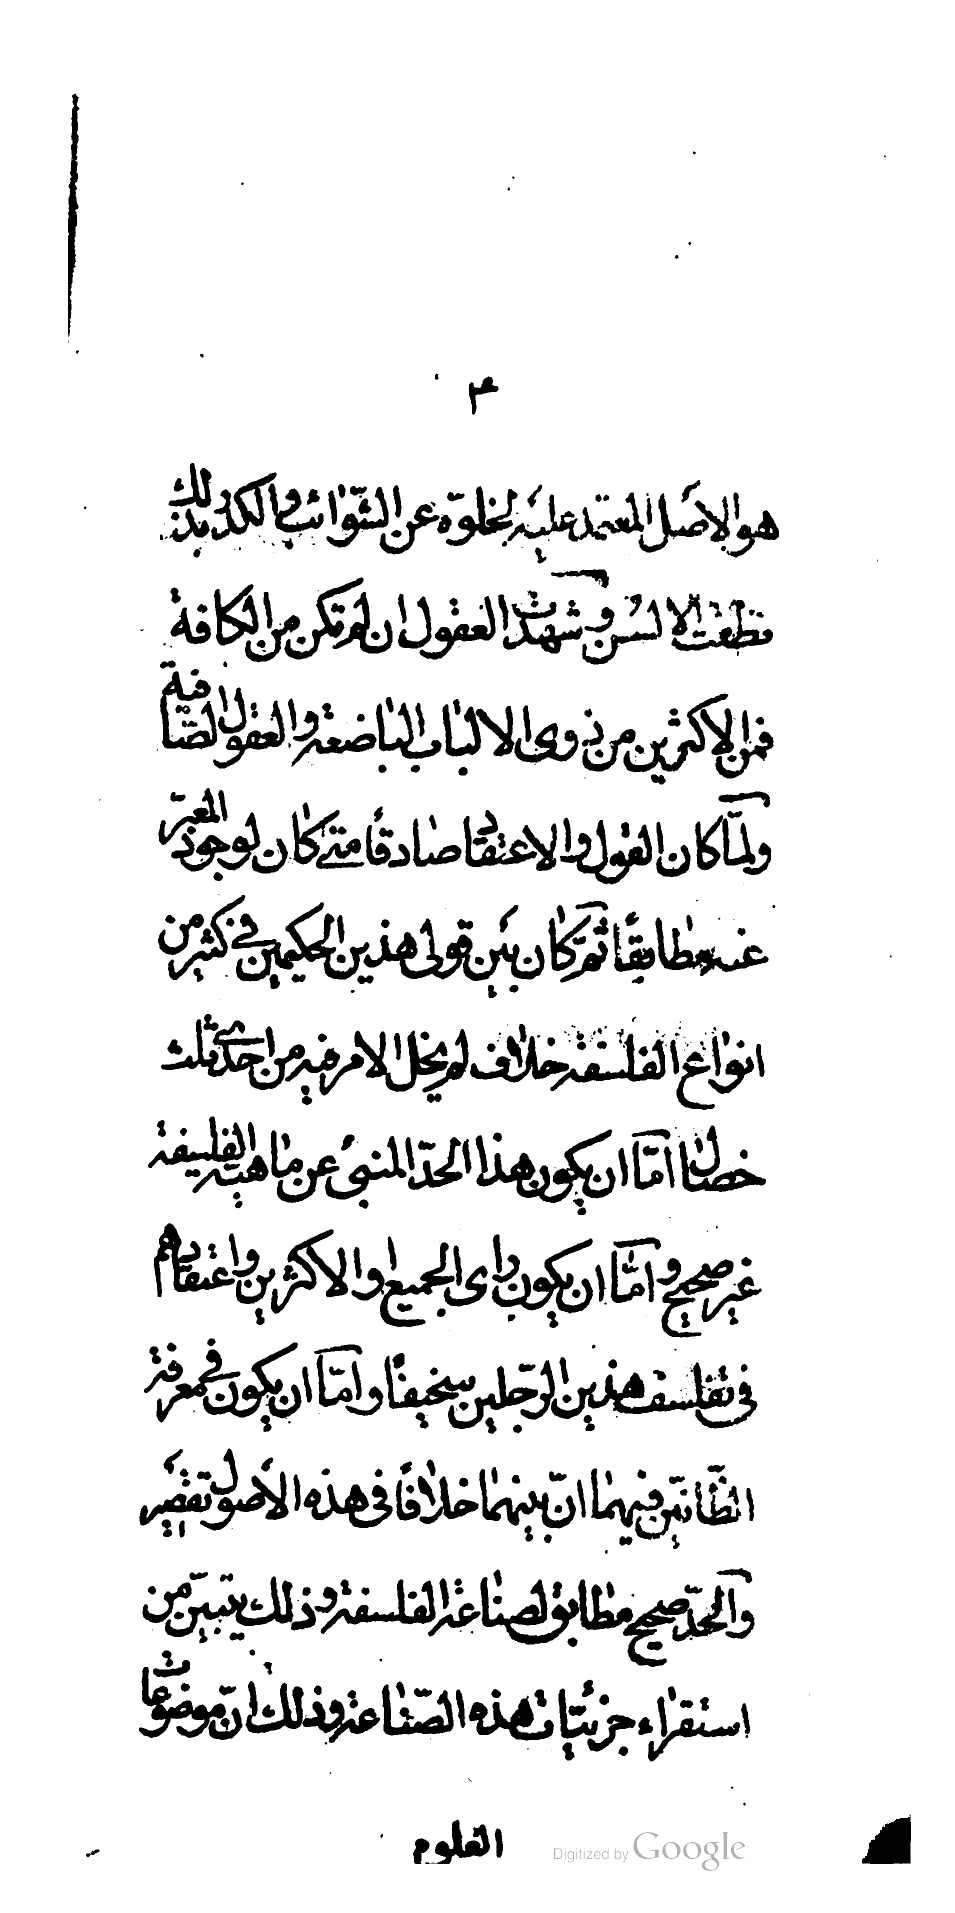 ٣
هو الاصل المعتمد عليه لخلوّه عن الشّوائب والكدر بذلك
نطقت الالسن وشهدت العقول ان لم تكن من الكافة
فمن الاكثرين من ذوى الالباب الناصعة والعقول الصّافية
ولمّا كان القول والاعتقاد صادقًا متى كان لوجود المعبّر
عنه مطابقًا ثم كان بين قولى هذين الحكيمين فى كثير من
انواع الفلسفة خلاف لم يخل الامر فيه من احدى ثلث
خصال امّا ان يكون هذا الحدّ المنبئ عن ماهية الفلسفة
غير صحيح وامّا ان يكون راى الجميع او الاكثرين واعتقادهم
فى تفلسف هذين الرّجلين سخيفًا وامّا ان يكون فى معرفة
الظّانّين فيهما انّ بينهما خلافًا فى هذه الاصول تقصير
والحدّ صحيح مطابق لصناعة الفلسفة وذلك يتبيّن من
استقراء جزئيّات هذه الصّناعة وذلك انّ موضوعات
العلوم
Digitized by Google